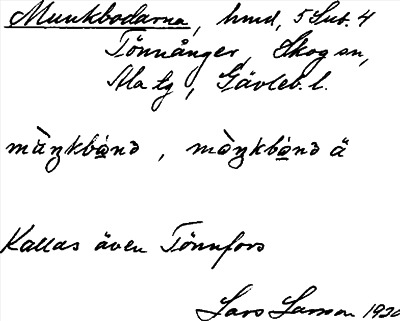 Munkbodarna, hmd, 5 Sut. 4
Tönnånger, Skog sn,
Ala tg, Gävleb. l.
mùŋkbo̱nə, mòŋkbo̱nə ä
Kallas även Tönnfors
Lars Larson 1930